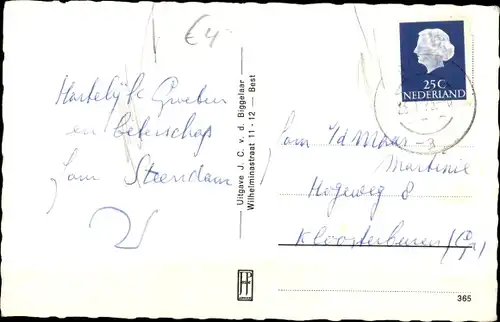 €4
25C
NEDERLAND
Hartelijke Groeten
en beterschap
Fam Steendam
Uitgave J. C. v. d. Biggelaar
Wilhelminastraat 11 - 12 — Best
Fam
Martinie
Hogeweg 8
Kloosterburen (Gr)
365